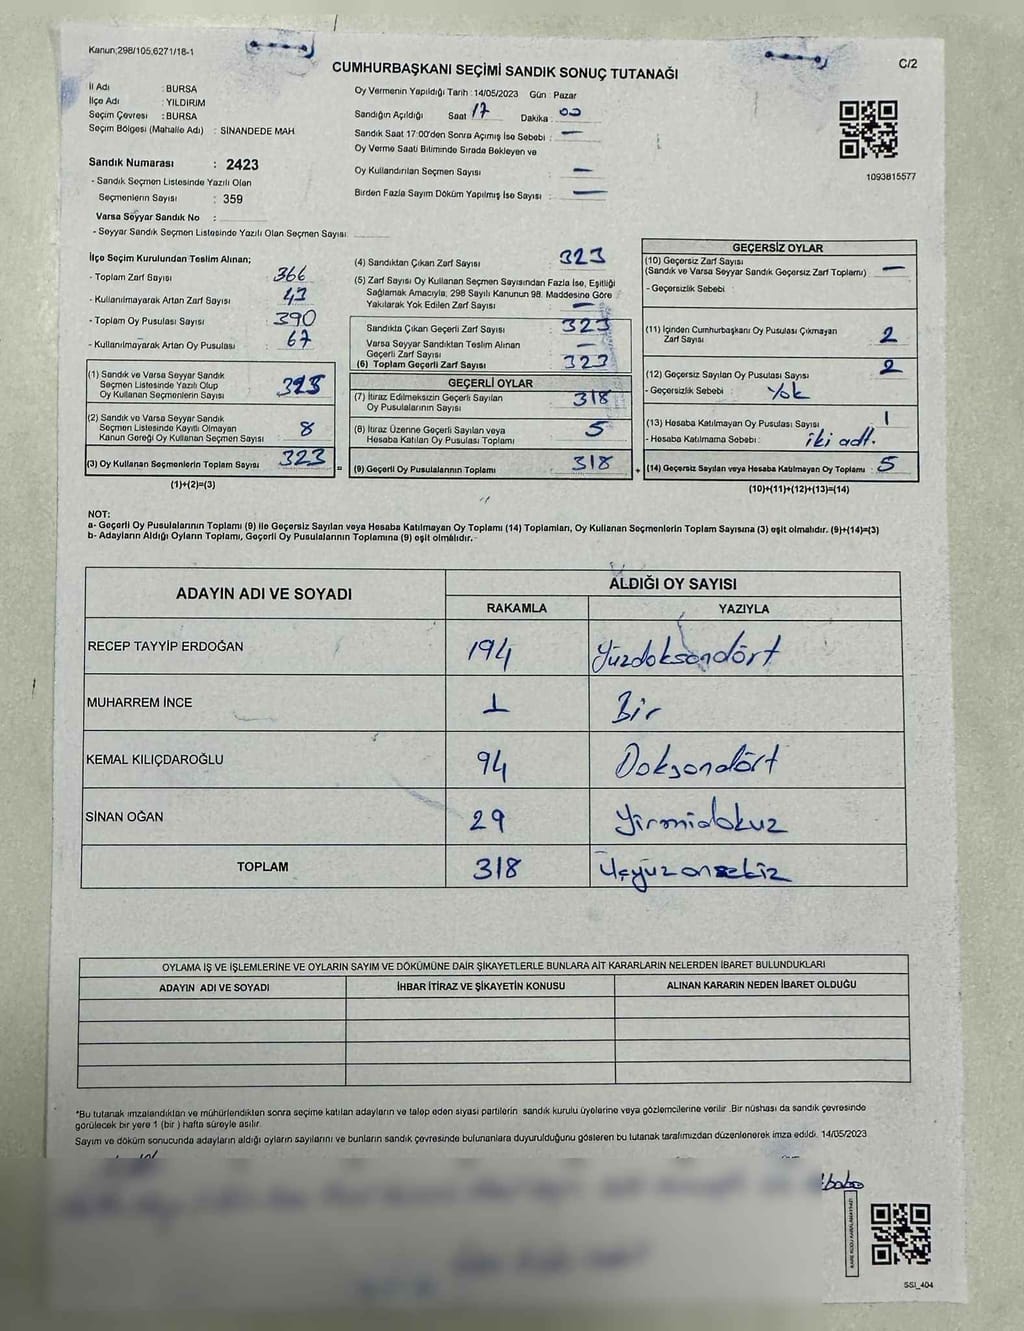 Kanun;298/105,6271/18-1
C/2
CUMHURBAŞKANI SEÇİMİ SANDIK SONUÇ TUTANAĞI
İl Adı : BURSA
İlçe Adı : YILDIRIM
Seçim Çevresi : BURSA
Seçim Bölgesi (Mahalle Adı) : SİNANDEDE MAH
Sandık Numarası : 2423
- Sandık Seçmen Listesinde Yazılı Olan
Seçmenlerin Sayısı : 359
Varsa Seyyar Sandık No :
- Seyyar Sandık Seçmen Listesinde Yazılı Olan Seçmen Sayısı:
Oy Vermenin Yapıldığı Tarih : 14/05/2023 Gün : Pazar
Sandığın Açıldığı Saat 17 Dakika : 00
Sandık Saat 17:00'den Sonra Açımış İse Sebebi : —
Oy Verme Saati Bitiminde Sırada Bekleyen ve
Oy Kullandırılan Seçmen Sayısı —
Birden Fazla Sayım Döküm Yapılmış İse Sayısı : —
1093815577
İlçe Seçim Kurulundan Teslim Alınan;
- Toplam Zarf Sayısı : 366
- Kullanılmayarak Artan Zarf Sayısı : 43
- Toplam Oy Pusulası Sayısı : 390
- Kullanılmayarak Artan Oy Pusulası : 67
(1) Sandık ve Varsa Seyyar Sandık
Seçmen Listesinde Yazılı Olup
Oy Kullanan Seçmenlerin Sayısı
(2) Sandık ve Varsa Seyyar Sandık
Seçmen Listesinde Kayıtlı Olmayan
Kanun Gereği Oy Kullanan Seçmen Sayısı 8
(3) Oy Kullanan Seçmenlerin Toplam Sayısı 323
(1)+(2)=(3)
=
(4) Sandıktan Çıkan Zarf Sayısı 323
(5) Zarf Sayısı Oy Kullanan Seçmen Sayısından Fazla İse, Eşitliği
Sağlamak Amacıyla, 298 Sayılı Kanunun 98. Maddesine Göre
Yakılarak Yok Edilen Zarf Sayısı : —
Sandıkta Çıkan Geçerli Zarf Sayısı 323
Varsa Seyyar Sandıktan Teslim Alınan
Geçerli Zarf Sayısı —
(6) Toplam Geçerli Zarf Sayısı 323
GEÇERLİ OYLAR
(7) İtiraz Edilmeksizin Geçerli Sayılan
Oy Pusulalarının Sayısı 318
(8) İtiraz Üzerine Geçerli Sayılan veya
Hesaba Katılan Oy Pusulası Toplamı 5
(9) Geçerli Oy Pusulalarının Toplamı 318
+
GEÇERSİZ OYLAR
(10) Geçersiz Zarf Sayısı
(Sandık ve Varsa Seyyar Sandık Geçersiz Zarf Toplamı) —
- Geçersizlik Sebebi :
(11) İçinden Cumhurbaşkanı Oy Pusulası Çıkmayan
Zarf Sayısı 2
(12) Geçersiz Sayılan Oy Pusulası Sayısı 2
- Geçersizlik Sebebi : Yok
(13) Hesaba Katılmayan Oy Pusulası Sayısı 1
- Hesaba Katılmama Sebebi : iki adt.
(14) Geçersiz Sayılan veya Hesaba Katılmayan Oy Toplamı : 5
(10)+(11)+(12)+(13)=(14)
NOT:
a- Geçerli Oy Pusulalarının Toplamı (9) ile Geçersiz Sayılan veya Hesaba Katılmayan Oy Toplamı (14) Toplamları, Oy Kullanan Seçmenlerin Toplam Sayısına (3) eşit olmalıdır. (9)+(14)=(3)
b- Adayların Aldığı Oyların Toplamı, Geçerli Oy Pusulalarının Toplamına (9) eşit olmalıdır.
ADAYIN ADI VE SOYADI
ALDIĞI OY SAYISI
RAKAMLA YAZIYLA
RECEP TAYYİP ERDOĞAN 194 Yüzdoksandört
MUHARREM İNCE 1 Bir
KEMAL KILIÇDAROĞLU 94 Doksandört
SİNAN OĞAN 29 Yirmidokuz
TOPLAM 318 Üçyüzonsekiz
OYLAMA İŞ VE İŞLEMLERİNE VE OYLARIN SAYIM VE DÖKÜMÜNE DAİR ŞİKAYETLERLE BUNLARA AİT KARARLARIN NELERDEN İBARET BULUNDUKLARI
ADAYIN ADI VE SOYADI İHBAR İTİRAZ VE ŞİKAYETİN KONUSU ALINAN KARARIN NEDEN İBARET OLDUĞU
*Bu tutanak imzalandıktan ve mühürlendikten sonra seçime katılan adayların ve talep eden siyasi partilerin sandık kurulu üyelerine veya gözlemcilerine verilir .Bir nüshası da sandık çevresinde
görülecek bir yere 1 (bir ) hafta süreyle asılır.
Sayım ve döküm sonucunda adayların aldığı oyların sayılarını ve bunların sandık çevresinde bulunanlara duyurulduğunu gösteren bu tutanak tarafımızdan düzenlenerek imza edildi. 14/05/2023
SSI_404